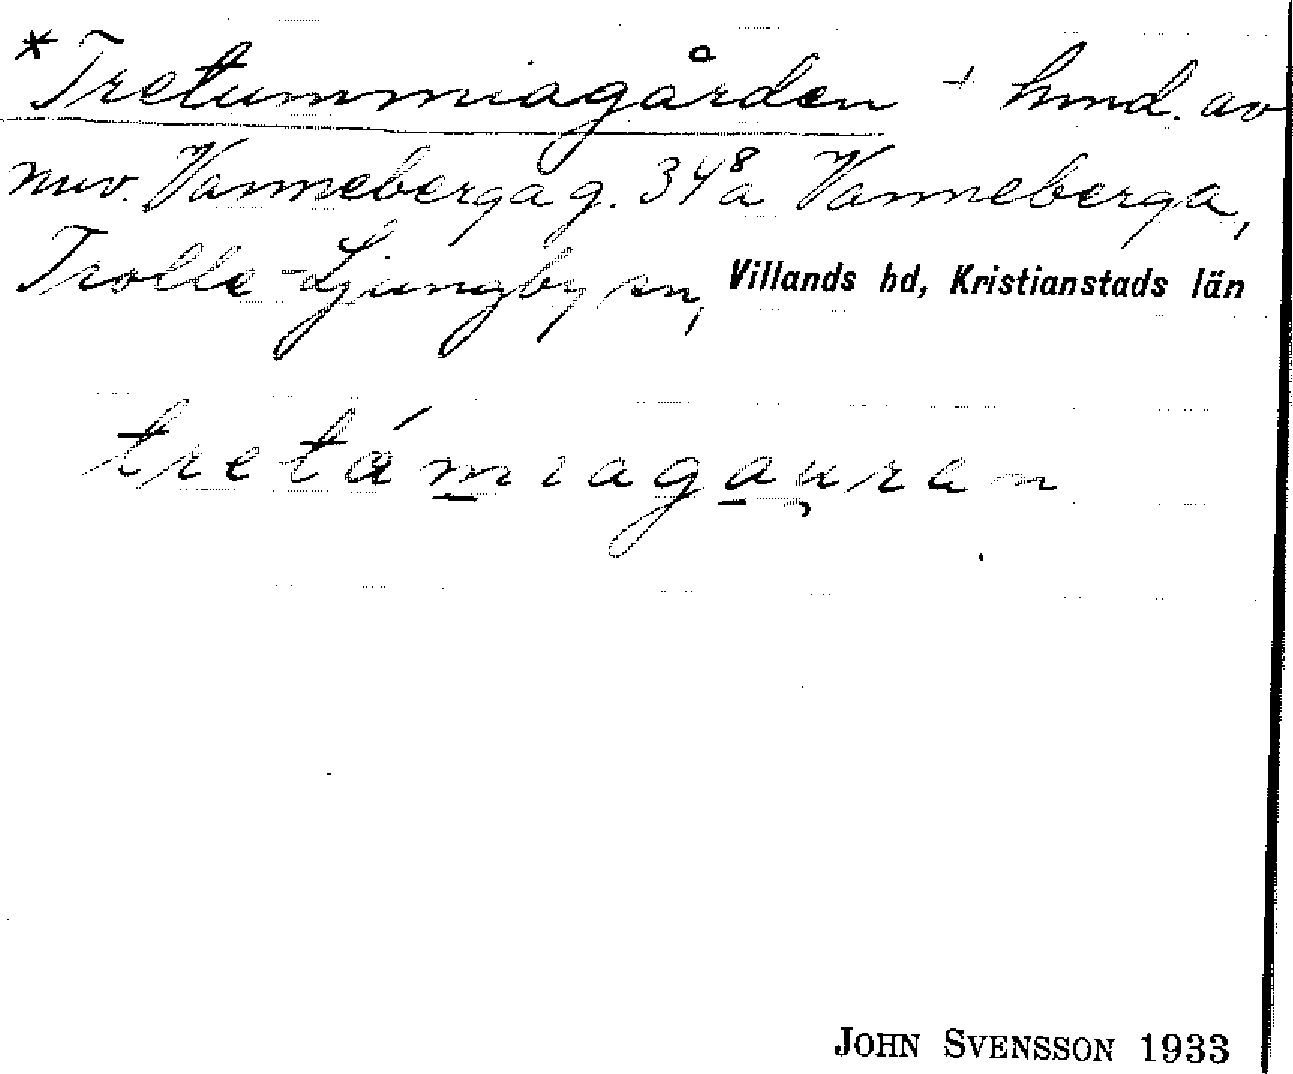 *Tretummiagården + hmd. av
nuv. Vanneberga g. 34⁸ a Vanneberga,
Trolle-Ljungby sn, Villands hd, Kristianstads län
tretámiagau̯ran
JOHN SVENSSON 1933